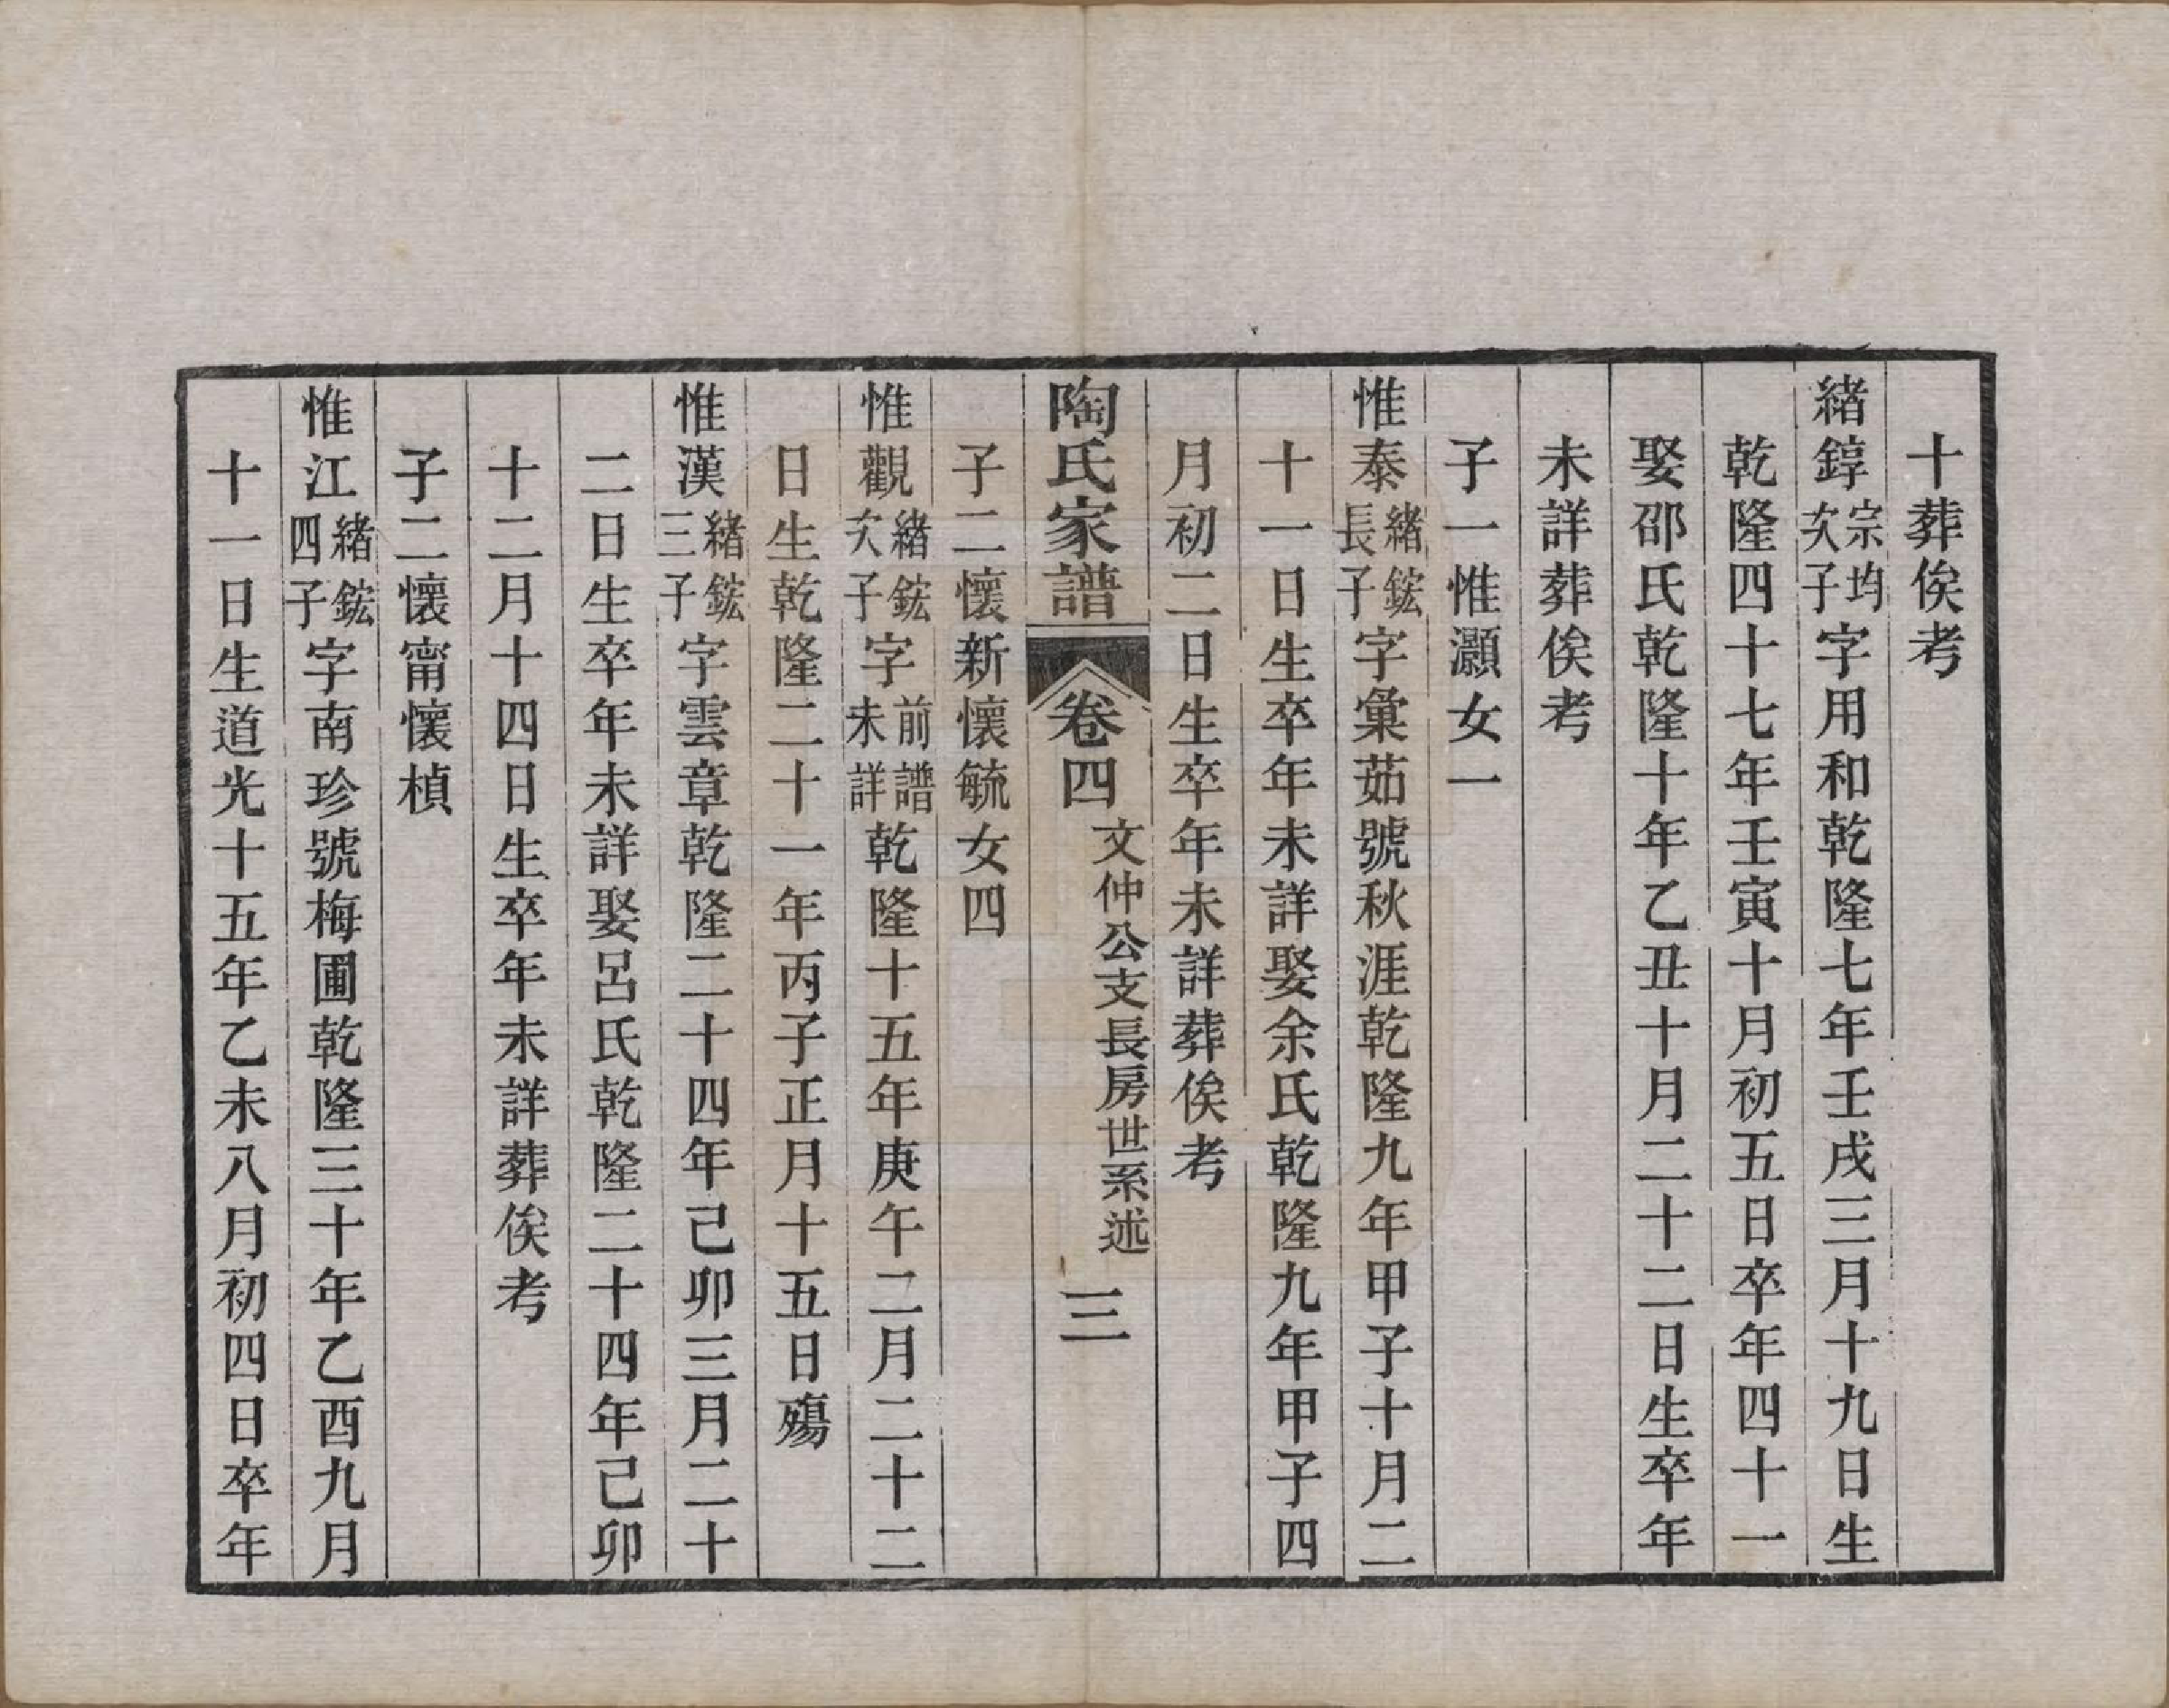 十葬俟考
緒錞宗均次子字用和乾隆七年壬戌三月十九日生
乾隆四十七年壬寅十月初五日卒年四十一
娶邵氏乾隆十年乙丑十月二十二日生卒年
未詳葬俟考
子一惟灝女一
惟泰緒鋐長子字彙茹號秋涯乾隆九年甲子十月二
十一日生卒年未詳娶余氏乾隆九年甲子四
月初二日生卒年未詳葬俟考
陶氏家譜 卷四 文仲公支長房世系述 三
子二懷新懷毓女四
惟觀緒鋐次子字前譜未詳乾隆十五年庚午二月二十二
日生乾隆二十一年丙子正月十五日殤
惟漢緒鋐三子字雲章乾隆二十四年己卯三月二十
二日生卒年未詳娶呂氏乾隆二十四年己卯
十二月十四日生卒年未詳葬俟考
子二懷甯懷楨
惟江緒鋐四子字南珍號梅圃乾隆三十年乙酉九月
十一日生道光十五年乙未八月初四日卒年